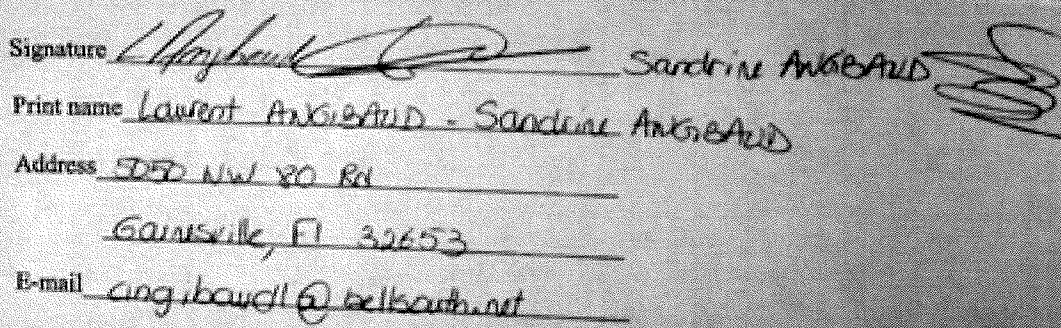 Signature L Angibaud Sandrine ANGIBAUD
Print name Laurent ANGIBAUD - Sandrine ANGIBAUD
Address 5050 NW 80 Rd
Gainesville, Fl 32653
E-mail angibaudl@bellsouth.net